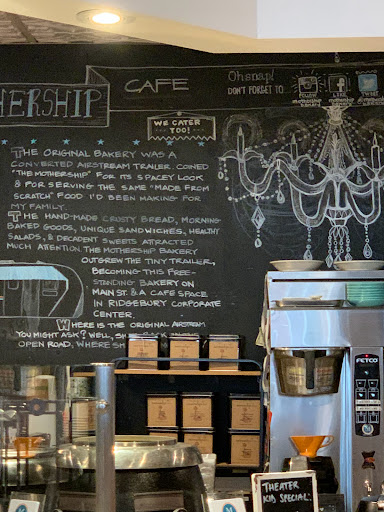 HERSHIP
CAFE
Oh snap!
DON'T FORGET TO
FOLLOW
LIKE
TWEET
WE CATER
TOO!
THE ORIGINAL BAKERY WAS A
CONVERTED AIRSTREAM TRAILER COINED
"THE MOTHERSHIP" FOR ITS SPACEY LOOK
& FOR SERVING THE SAME "MADE FROM
SCRATCH" FOOD I'D BEEN MAKING FOR
MY FAMILY.
THE HAND-MADE CRUSTY BREAD, MORNING
BAKED GOODS, UNIQUE SANDWICHES, HEALTHY
SALADS, & DECADENT SWEETS ATTRACTED
MUCH ATENTION. THE MOTHERSHIP BAKERY
OUTGREW THE TINY TRAILER,
BECOMING THIS FREE-
STANDING BAKERY ON
MAIN ST. & A CAFE SPACE
IN RIDGEBURY CORPORATE
CENTER.
WHERE IS THE ORIGINAL AIRSTREAM
YOU MIGHT ASK? WELL, SH
OPEN ROAD, WHERE SH
FETCO
THEATER
KID SPECIAL!